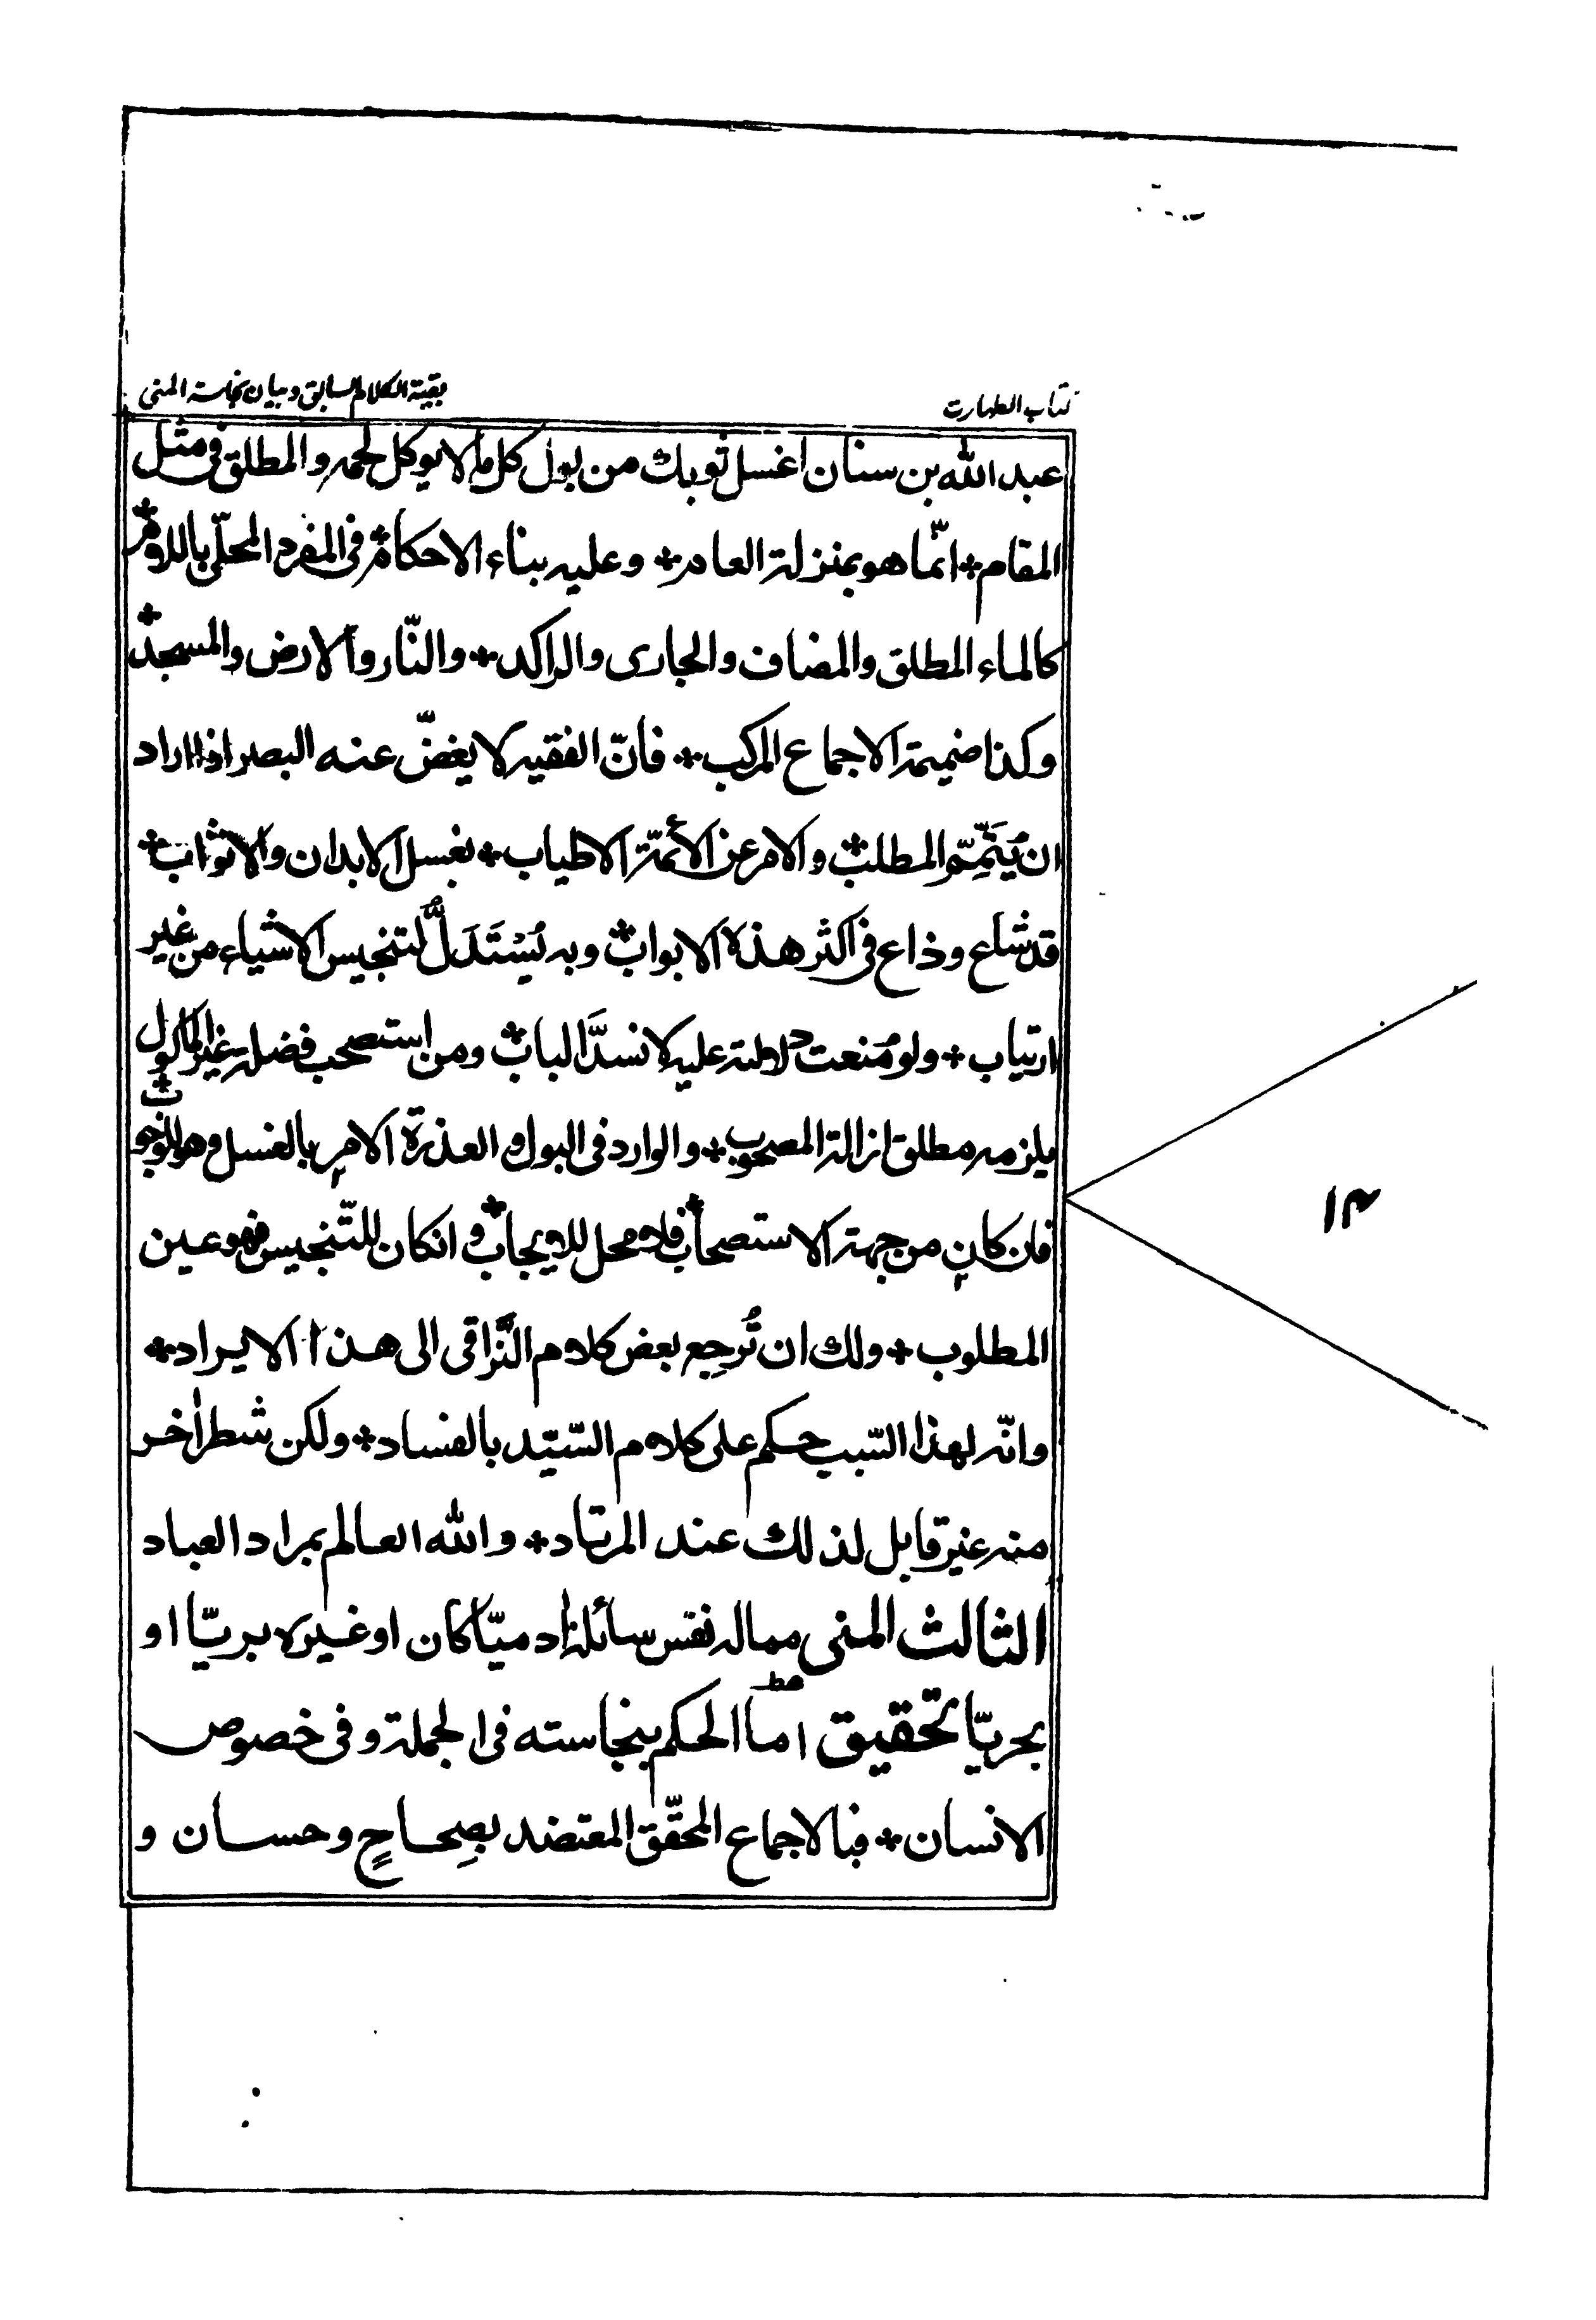 كتاب الطهارت
بقية الكلام السابق وبيان نجاسة المنى
عبد الله بن سنان اغسل ثوبك من بول كل ما لا يوكل لحمه والمطلق فى مثل
المقام * انّما هو بمنزلة العام * وعليه بناء الاحكام * فى المفرد المحلّى باللام *
كالماء المطلق والمضاف والجارى والراكد * والنّار والارض والمسجد *
وكذا ضميمة الاجماع المركب * فانّ الفقيه لا يغضّ عنه البصر اذا اراد
ان يُتَمِّم المطلب * والامر عن الأئمّة الاطياب * بغسل الابدان والاثواب *
قد شاع وذاع فى اكثر هذه الابواب * وبه يُسْتَدَلُّ لتنجيس الاشياء من غير
ارتياب * ولو مُنعت دلالته عليه لانسدَّ الباب * ومن استصحب فضلة غير الماكول
يلزمه مطلق ازالة المصحوب * والوارد فى البول والعذرة الامر بالغسل وهو للوجوب *
فان كان من جهة الاستصحاب فلا محل للايجاب * وانكان للتّنجيس فهو عين
المطلوب * ولك ان تُرجِع بعض كلام النَّراقى الى هذا الايراد *
وانّه لهذا السّبب حكم على كلام السّيّد بالفساد * ولكن شطرا اخر
منه غير قابل لذلك عند المرتاد * والله العالم بمراد العباد
الثالث المنى مماله نفس سائلة ادميّا كان او غيره بريّا او
بحريّا تحقيق امّا الحكم بنجاسته فى الجملة وفى خصوص
الانسان * فبالاجماع المحقّق المعتضد بصِحاحٍ وحسان و
۱۳